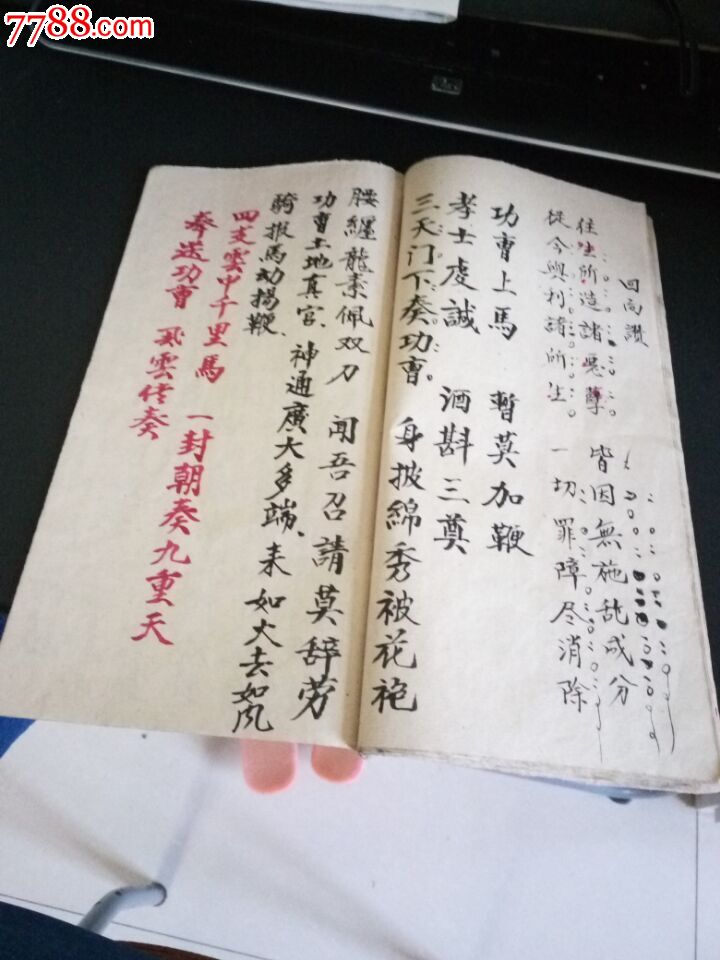 7788.com
中国收藏热线
回向讚
往生所造諸惡孽 皆因無施乱成分
從今與利諸所生 一切罪障尽消除
功曹上馬 暫莫加鞭
孝士虔誠 酒斟三奠
三天门下奏功曹。身披綿秀被花袍
腰纏龍素佩双刀 闻吾召請莫辞劳
功曹土地真官、神通廣大多端、来如火去如風
骑报馬动揚鞭、
四支雲中千里馬 一封朝奏九重天
奉送功曹 風雲传奏